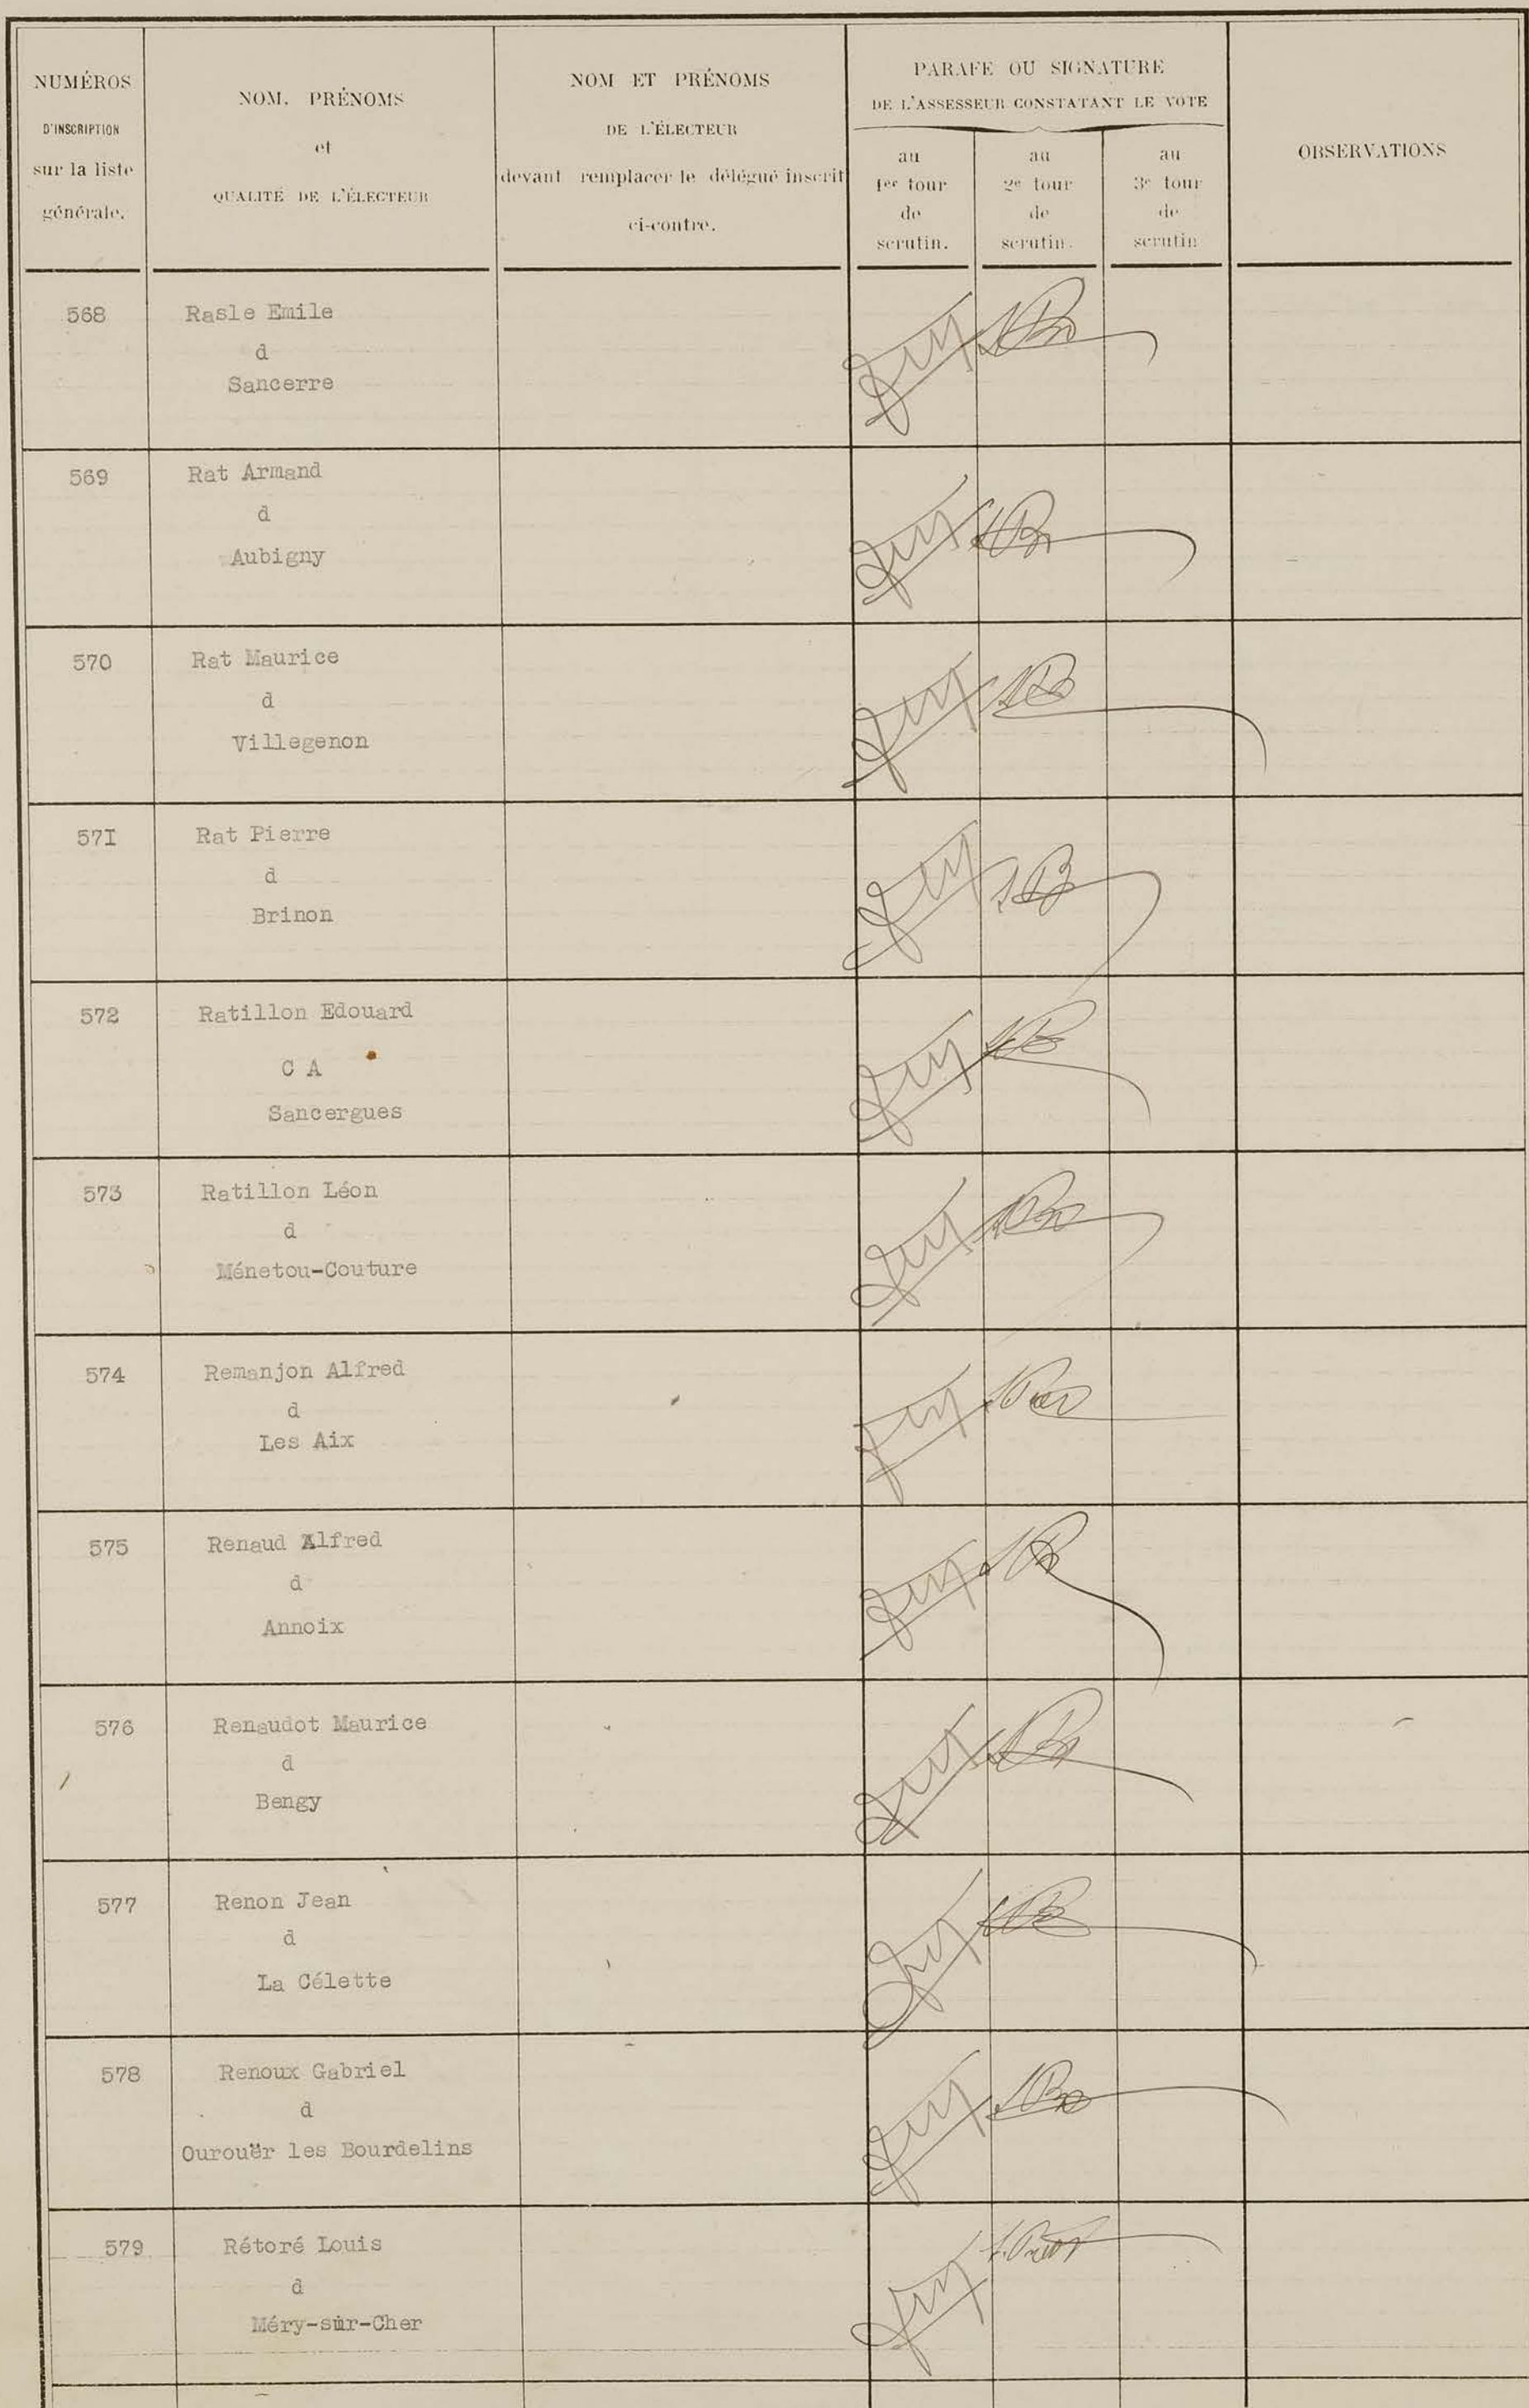 NUMÉROS
D'INSCRIPTION
sur la liste
générale.
NOM, PRÉNOMS
et
QUALITÉ DE L'ÉLECTEUR
NOM ET PRÉNOMS
DE L'ÉLECTEUR
devant remplacer le délégué inscrit
ci-contre.
PARAFE OU SIGNATURE
DE L'ASSESSEUR CONSTATANT LE VOTE
au
1er tour
de
scrutin.
au
2e tour
de
scrutin.
au
3e tour
de
scrutin
OBSERVATIONS
568
Rasle Emile
d
Sancerre
569
Rat Armand
d
Aubigny
570
Rat Maurice
d
Villegenon
57I
Rat Pierre
d
Brinon
572
Ratillon Edouard
C A
Sancergues
573
Ratillon Léon
d
Ménetou-Couture
574
Remanjon Alfred
d
Les Aix
575
Renaud Alfred
d
Annoix
576
Renaudot Maurice
d
Bengy
577
Renon Jean
d
La Célette
578
Renoux Gabriel
d
Ourouër les Bourdelins
579
Rétoré Louis
d
Méry-sur-Cher